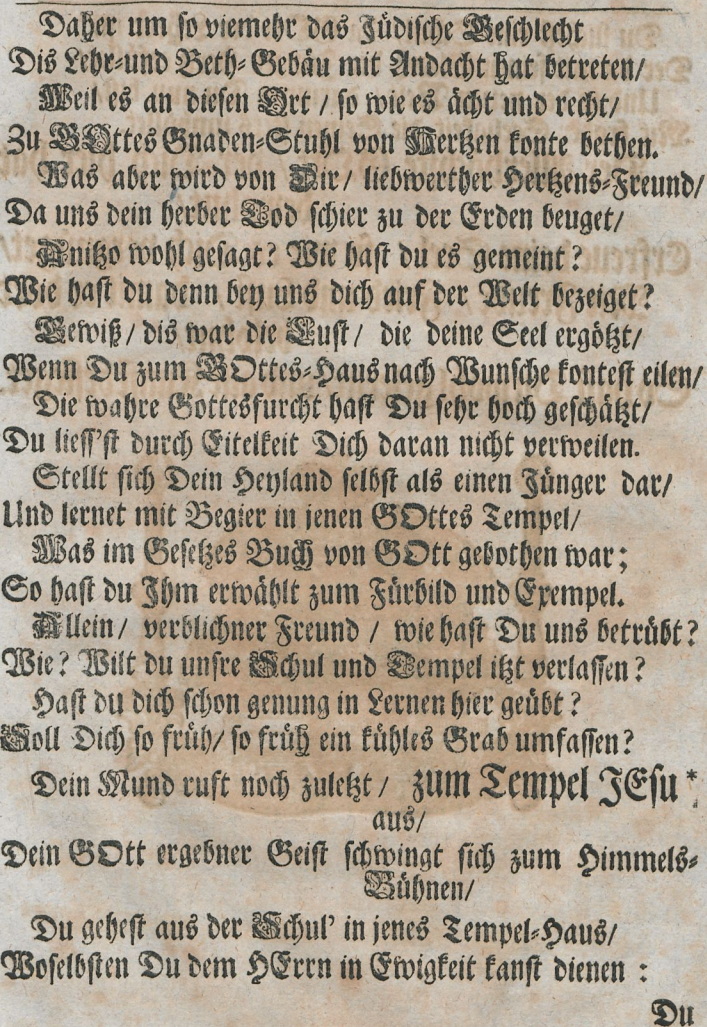 Daher um so viemehr das Jüdische Geschlecht
Dis Lehr-und Beth-Gebäu mit Andacht hat betreten/
Weil es an diesen Ort / so wie es ächt und recht/
Zu GOttes Gnaden-Stuhl von Hertzen konte bethen.
Was aber wird von Dir/ liebwerther Hertzens-Freund/
Da uns dein herber Tod schier zu der Erden beuget/
Anitzo wohl gesagt? Wie hast du es gemeint?
Wie hast du denn bey uns dich auf der Welt bezeiget?
Gewiß/ dis war die Lust/ die deine Seel ergötzt/
Wenn Du zum GOttes-Haus nach Wunsche kontest eilen/
Die wahre Gottesfurcht hast Du sehr hoch geschätzt/
Du liess'st durch Eitelkeit Dich daran nicht verweilen.
Stellt sich Dein Heyland selbst als einen Jünger dar/
Und lernet mit Begier in jenen GOttes Tempel/
Was im Gesetzes Buch von GOtt gebothen war;
So hast du Ihm erwählt zum Fürbild und Exempel.
Allein/ verblichner Freund / wie hast Du uns betrübt?
Wie? Wilt du unsre Schul und Tempel itzt verlassen?
Hast du dich schon genung in Lernen hier geübt?
Soll Dich so früh/ so früh ein kühles Grab umfassen?
Dein Mund ruft noch zuletzt / zum Tempel JEsu *
aus/
Dein GOtt ergebner Geist schwingt sich zum Himmels-
Bühnen/
Du gehest aus der Schul' in jenes Tempel-Haus/
Woselbsten Du dem HErrn in Ewigkeit kanst dienen :
Du